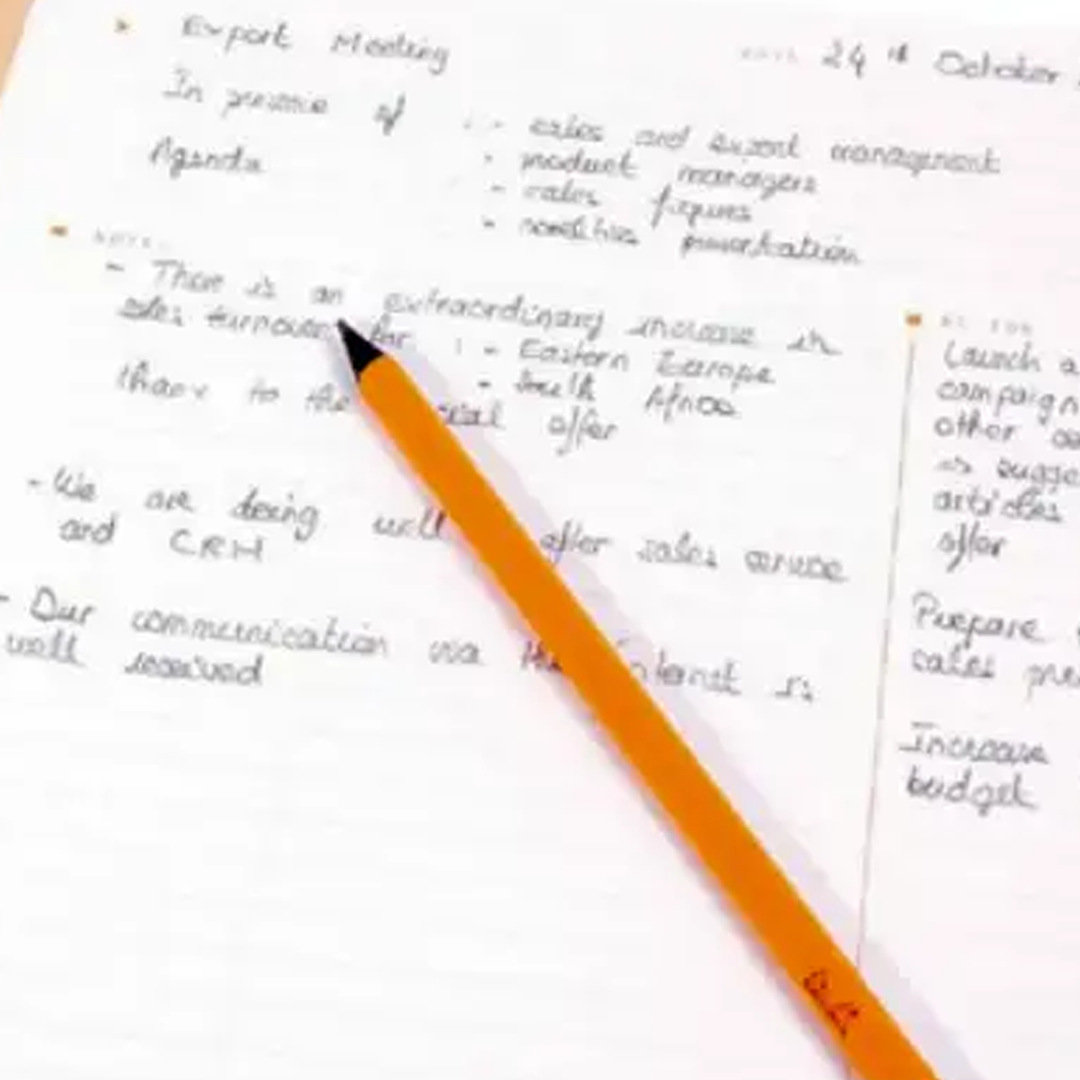 Export Meeting
DATE 24th October
In presence of : - sales and export management
- product managers
Agenda
- sales figures
- novelties presentation
NOTES
- There is an extraordinary increase in
sales turnover for : - Eastern Europe
- South Africa
thanx to the offer
- We are doing well after sales service
and CRM
- Our communication via the internet is
well received
TO DO
Launch a
campaign
other
=> sugge
articles
offer
Prepare
sales pre
Increase
budget